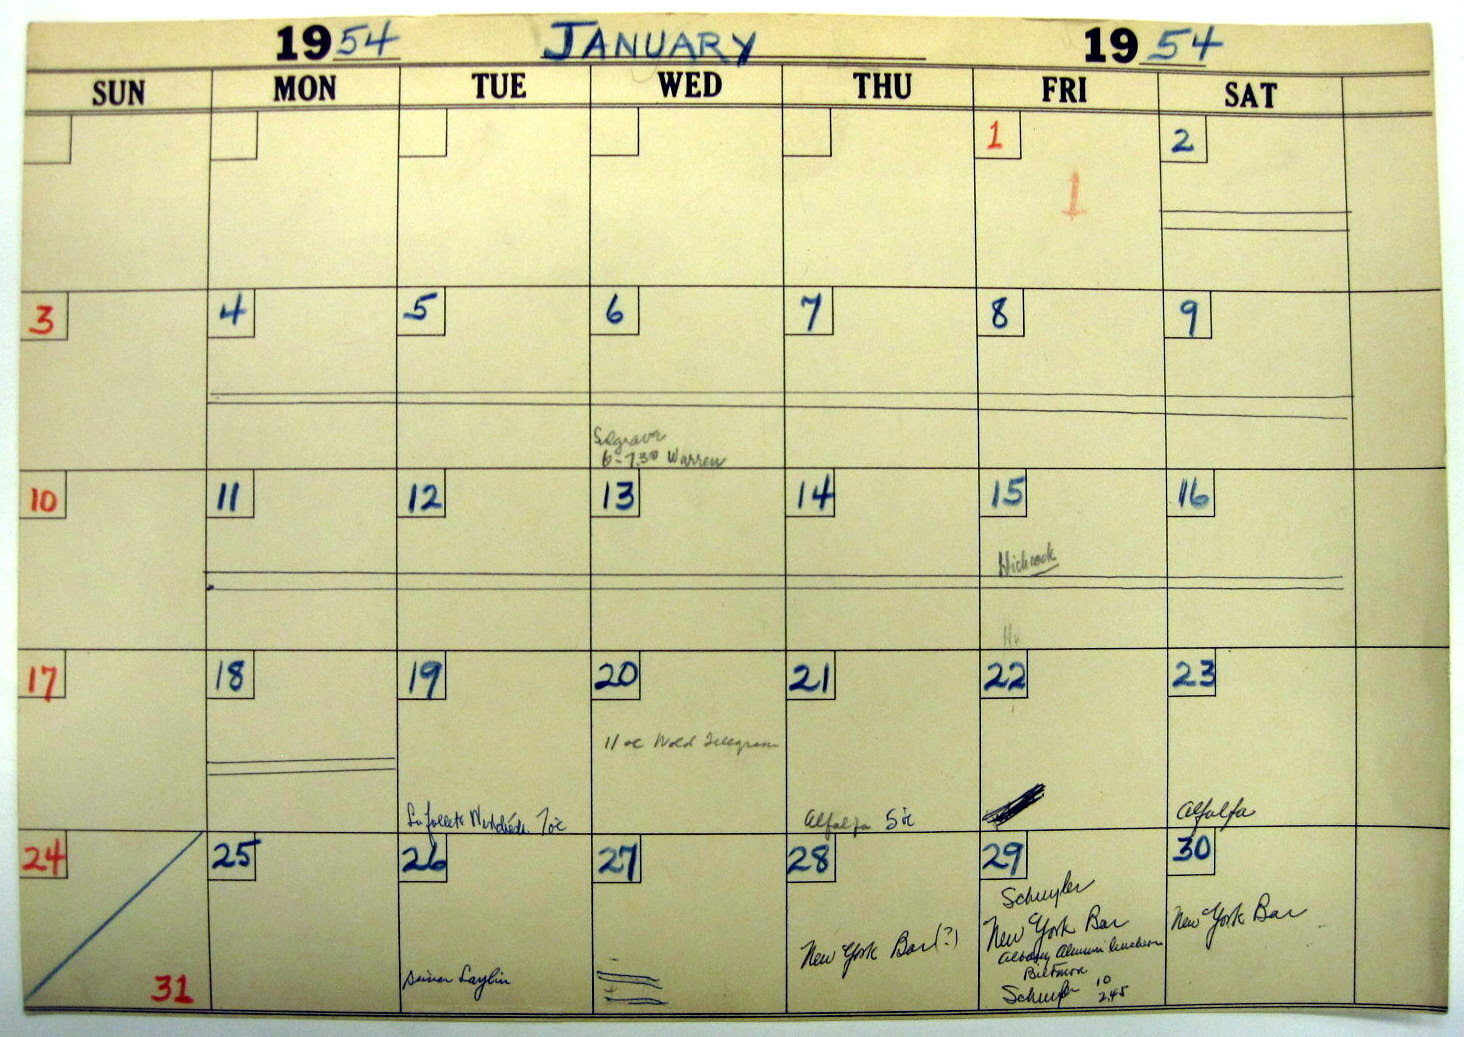 1954 JANUARY 1954
SUN MON TUE WED THU FRI SAT
1 2
1
3 4 5 6 7 8 9
6-7.30 Warren
10 11 12 13 14 15 16
Hichcock
17 18 19 20 21 22 23
11 oc Wold Telegram
7 oc
Alfalfa 5 oc
Alfalfa
24 25 26 27 28 29 30
Schuyler
New York Bar
New York Bar
New York Bar (?)
Albany Alumni luncheon
Biltmore
dinner Laylin
10
2.45
31